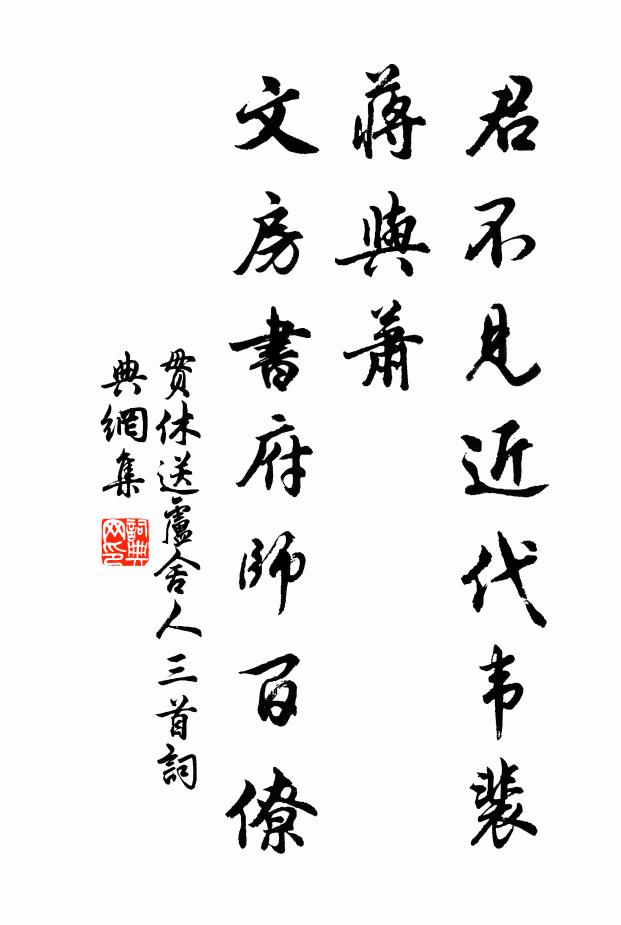 君不見近代韦裴
蔣與蕭
文房書府師百僚
貫休送盧舍人三首詞
典網集
詞典
网印